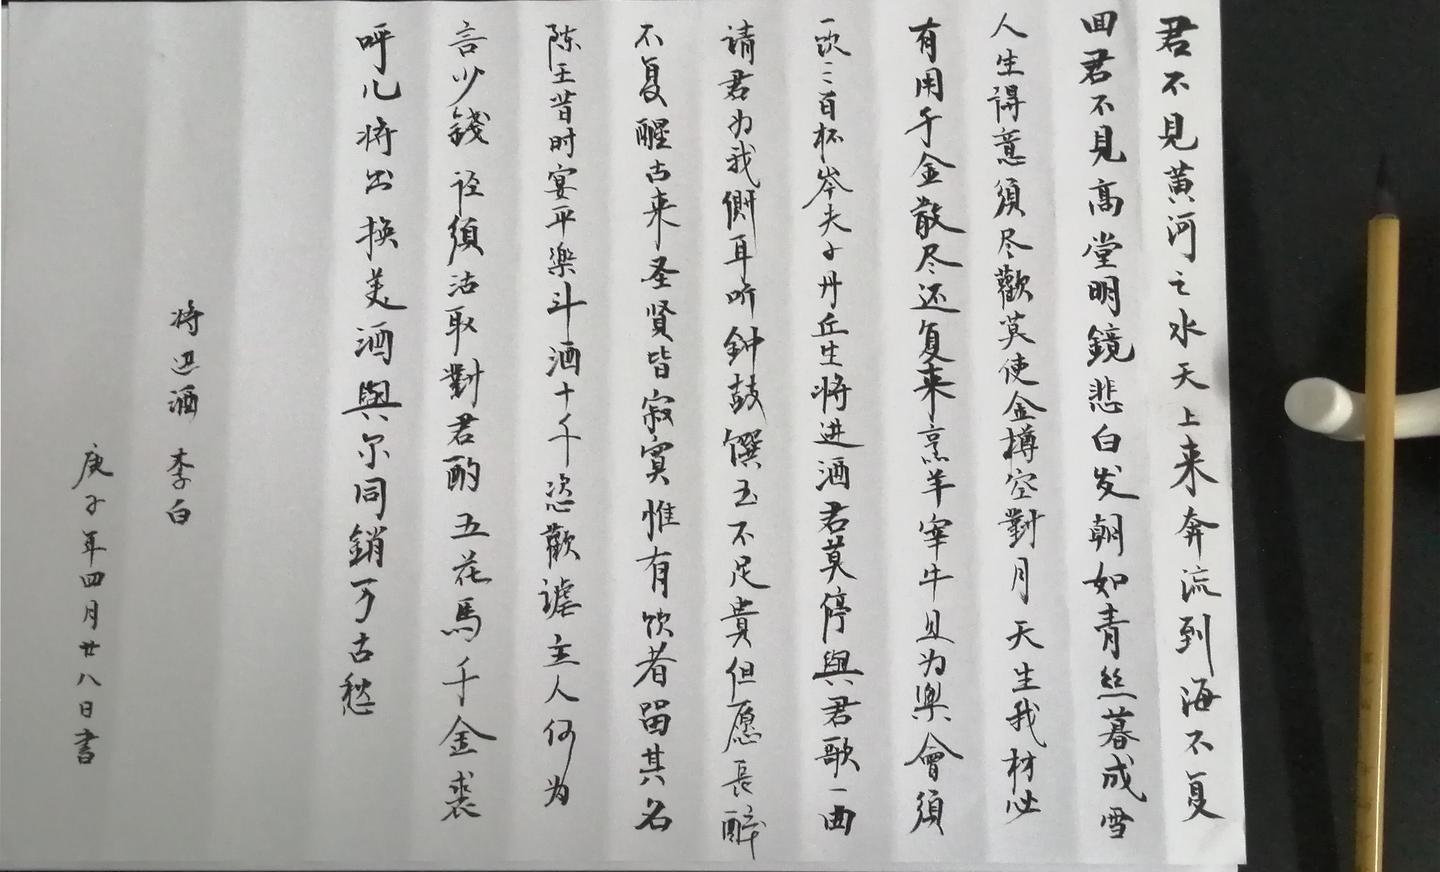 君不見黄河之水天上来奔流到海不复
回君不見高堂明鏡悲白发朝如青丝暮成雪
人生得意須尽歡莫使金樽空對月天生我材必
有用千金散尽还复来烹羊宰牛且为樂會須
一饮三百杯岑夫子丹丘生将进酒君莫停與君歌一曲
请君为我侧耳听鈡鼓馔玉不足貴但愿長醉
不复醒古来圣贤皆寂寞惟有饮者留其名
陈王昔时宴平樂斗酒十千恣歡谑主人何为
言少錢径須沽取對君酌五花馬千金裘
呼儿将出换美酒與尔同銷万古愁
将进酒 李白
庚子年四月廿八日書